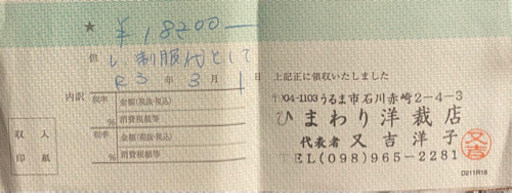 ★ ¥18200—
但し、制服代として
R3年3月1日 上記正に領収いたしました
内訳
税率 金額(税抜・税込)
% 消費税額等
税率 金額(税抜・税込)
% 消費税額等
収入
印紙
〒904-1103うるま市石川赤崎2-4-3
ひまわり洋裁店
代表者 又吉洋子
TEL(098)965-2281
又吉
D211R18